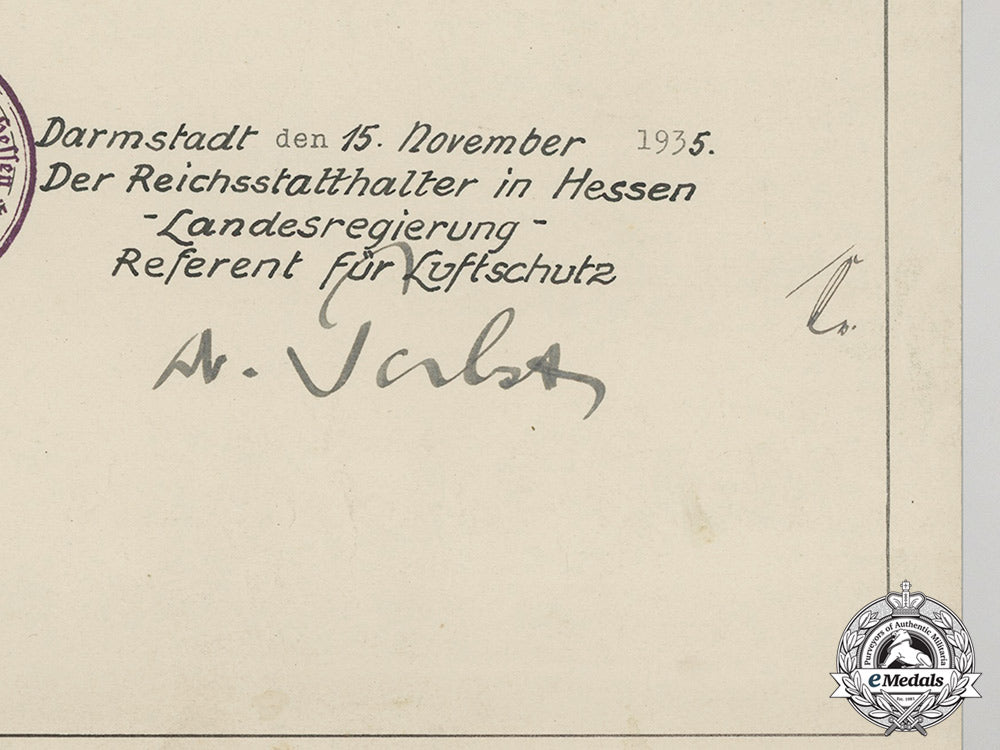 Darmstadt den 15. November 1935.
Der Reichsstatthalter in Hessen
-Landesregierung-
Referent für Luftschutz
Dr.
Hessen *
Purveyors of Authentic Militaria
eMedals
Est. 1985